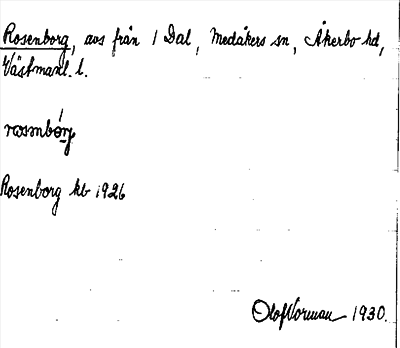 Rosenborg, avs från 1 Dal, Medåkers sn, Åkerbo hd,
Västmanl. l.
Rosenborg kb 1926
Olof Vorman 1930.